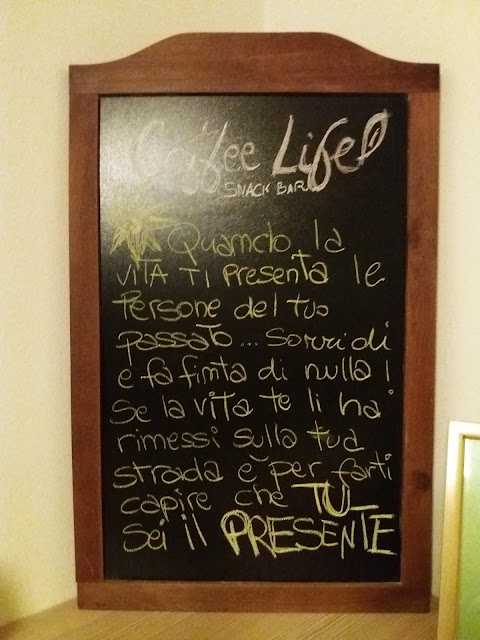 Coffee Life
SNACK BAR
Quando la
VITA TI Presenta le
Persone del tuo
passato... sorridi
e fa finta di nulla!
Se la vita te li ha
rimessi sulla tua
strada è per farti
capire che TU
sei il PRESENTE